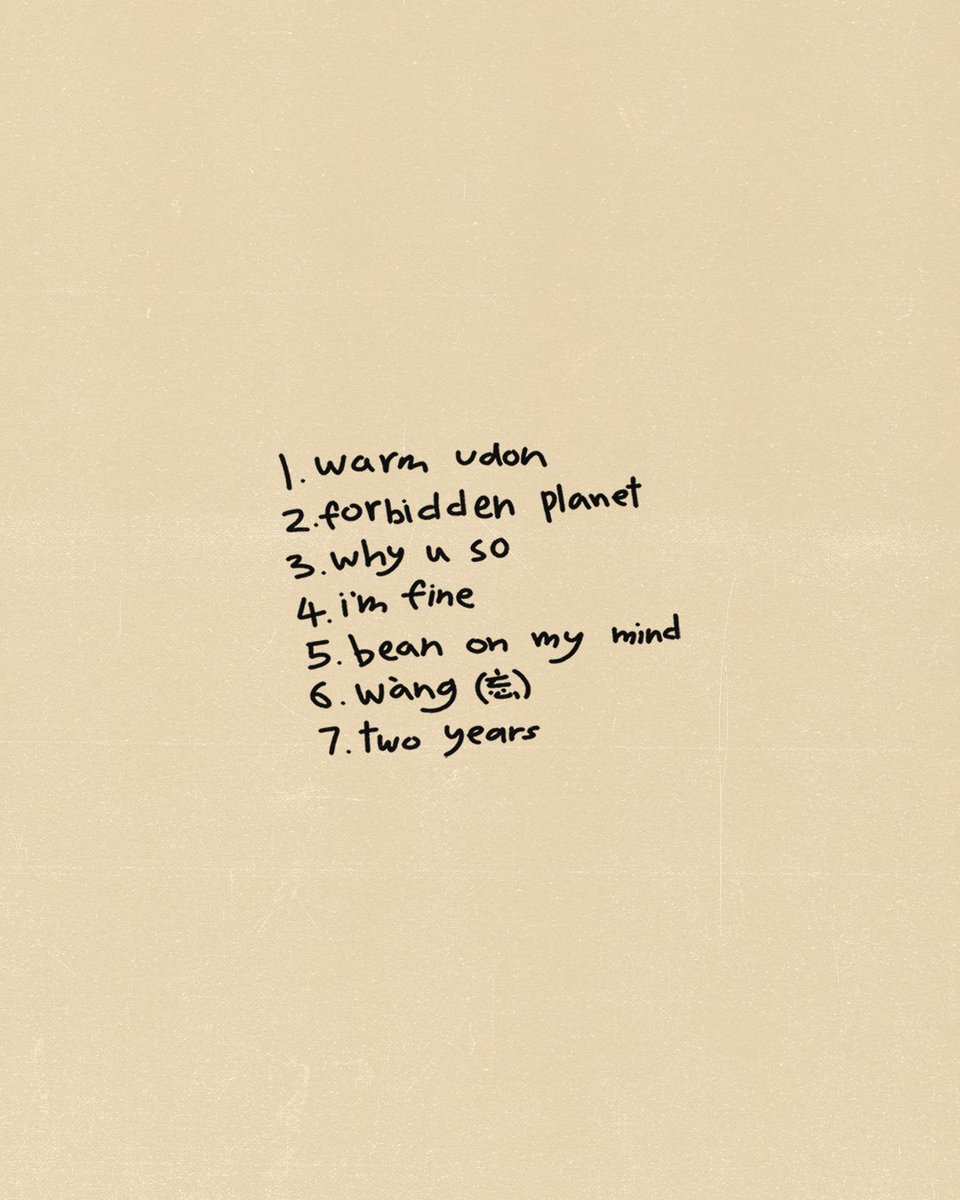 1. warm udon
2. forbidden planet
3. why u so
4. i'm fine
5. bean on my mind
6. wàng (忘)
7. two years